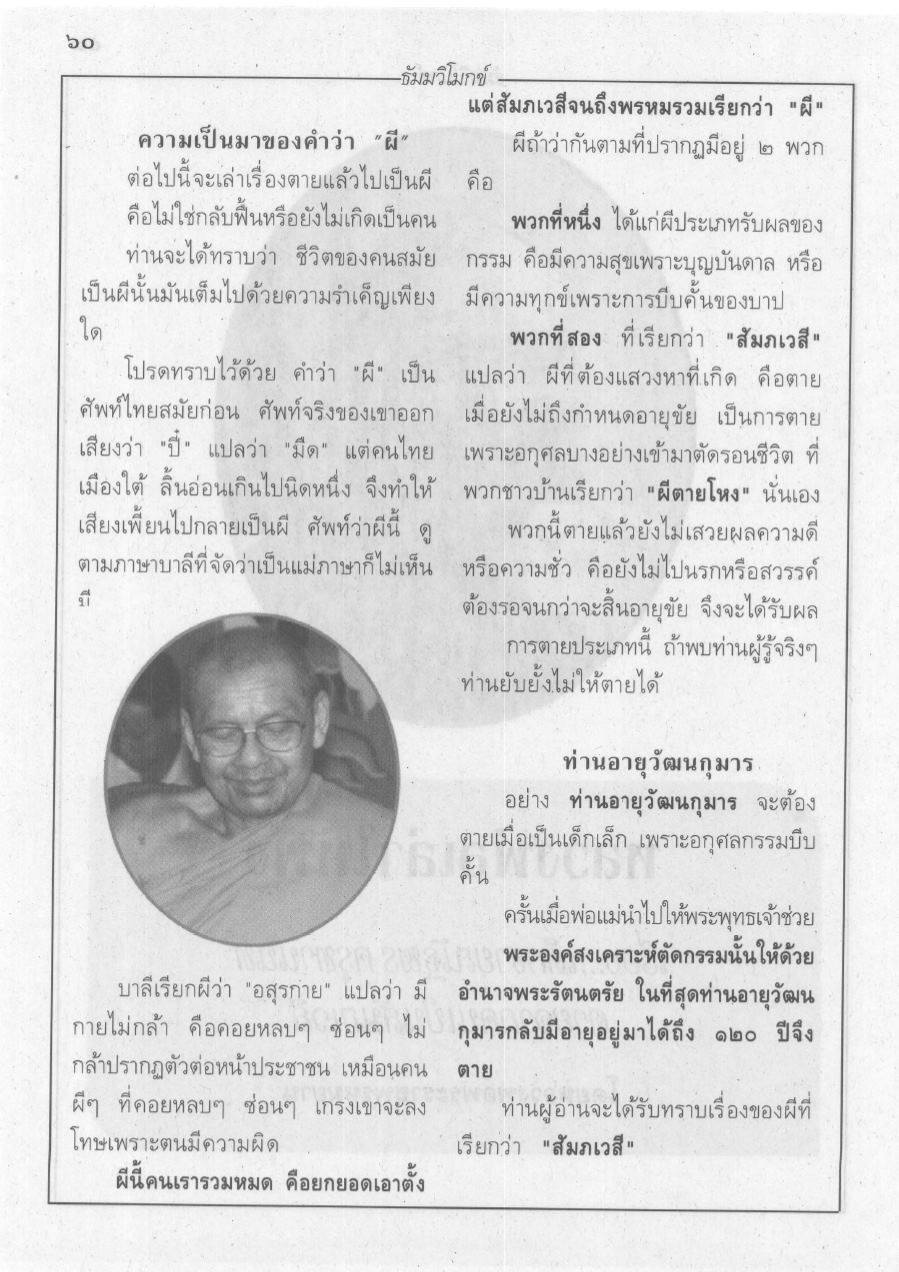 ๖๐
ธัมมวิโมกข์
ความเป็นมาของคำว่า "ผี"
ต่อไปนี้จะเล่าเรื่องตายแล้วไปเป็นผี
คือไม่ใช่กลับฟื้นหรือยังไม่เกิดเป็นคน
ท่านจะได้ทราบว่า ชีวิตของคนสมัย
เป็นผีนั้นมันเต็มไปด้วยความรำเค็ญเพียง
ใด
โปรดทราบไว้ด้วย คำว่า "ผี" เป็น
ศัพท์ไทยสมัยก่อน ศัพท์จริงของเขาออก
เสียงว่า "ปี๋" แปลว่า "มืด" แต่คนไทย
เมืองใต้ ลิ้นอ่อนเกินไปนิดหนึ่ง จึงทำให้
เสียงเพี้ยนไปกลายเป็นผี ศัพท์ว่าผีนี้ ดู
ตามภาษาบาลีที่จัดว่าเป็นแม่ภาษาก็ไม่เห็น
มี
บาลีเรียกผีว่า "อสุรกาย" แปลว่า มี
กายไม่กล้า คือคอยหลบๆ ซ่อนๆ ไม่
กล้าปรากฏตัวต่อหน้าประชาชน เหมือนคน
ผีๆ ที่คอยหลบๆ ซ่อนๆ เกรงเขาจะลง
โทษเพราะตนมีความผิด
ผีนี้คนเรารวมหมด คือยกยอดเอาตั้ง
แต่สัมภเวสีจนถึงพรหมรวมเรียกว่า "ผี"
ผีถ้าว่ากันตามที่ปรากฏมีอยู่ ๒ พวก
คือ
พวกที่หนึ่ง ได้แก่ผีประเภทรับผลของ
กรรม คือมีความสุขเพราะบุญบันดาล หรือ
มีความทุกข์เพราะการบีบคั้นของบาป
พวกที่สอง ที่เรียกว่า "สัมภเวสี"
แปลว่า ผีที่ต้องแสวงหาที่เกิด คือตาย
เมื่อยังไม่ถึงกำหนดอายุขัย เป็นการตาย
เพราะอกุศลบางอย่างเข้ามาตัดรอนชีวิต ที่
พวกชาวบ้านเรียกว่า "ผีตายโหง" นั่นเอง
พวกนี้ตายแล้วยังไม่เสวยผลความดี
หรือความชั่ว คือยังไม่ไปนรกหรือสวรรค์
ต้องรอจนกว่าจะสิ้นอายุขัย จึงจะได้รับผล
การตายประเภทนี้ ถ้าพบท่านผู้รู้จริงๆ
ท่านยับยั้งไม่ให้ตายได้
ท่านอายุวัฒนกุมาร
อย่าง ท่านอายุวัฒนกุมาร จะต้อง
ตายเมื่อเป็นเด็กเล็ก เพราะอกุศลกรรมบีบ
คั้น
ครั้นเมื่อพ่อแม่นำไปให้พระพุทธเจ้าช่วย
พระองค์สงเคราะห์ตัดกรรมนั้นให้ด้วย
อำนาจพระรัตนตรัย ในที่สุดท่านอายุวัฒน
กุมารกลับมีอายุอยู่มาได้ถึง ๑๒๐ ปีจึง
ตาย
ท่านผู้อ่านจะได้รับทราบเรื่องของผีที่
เรียกว่า "สัมภเวสี"